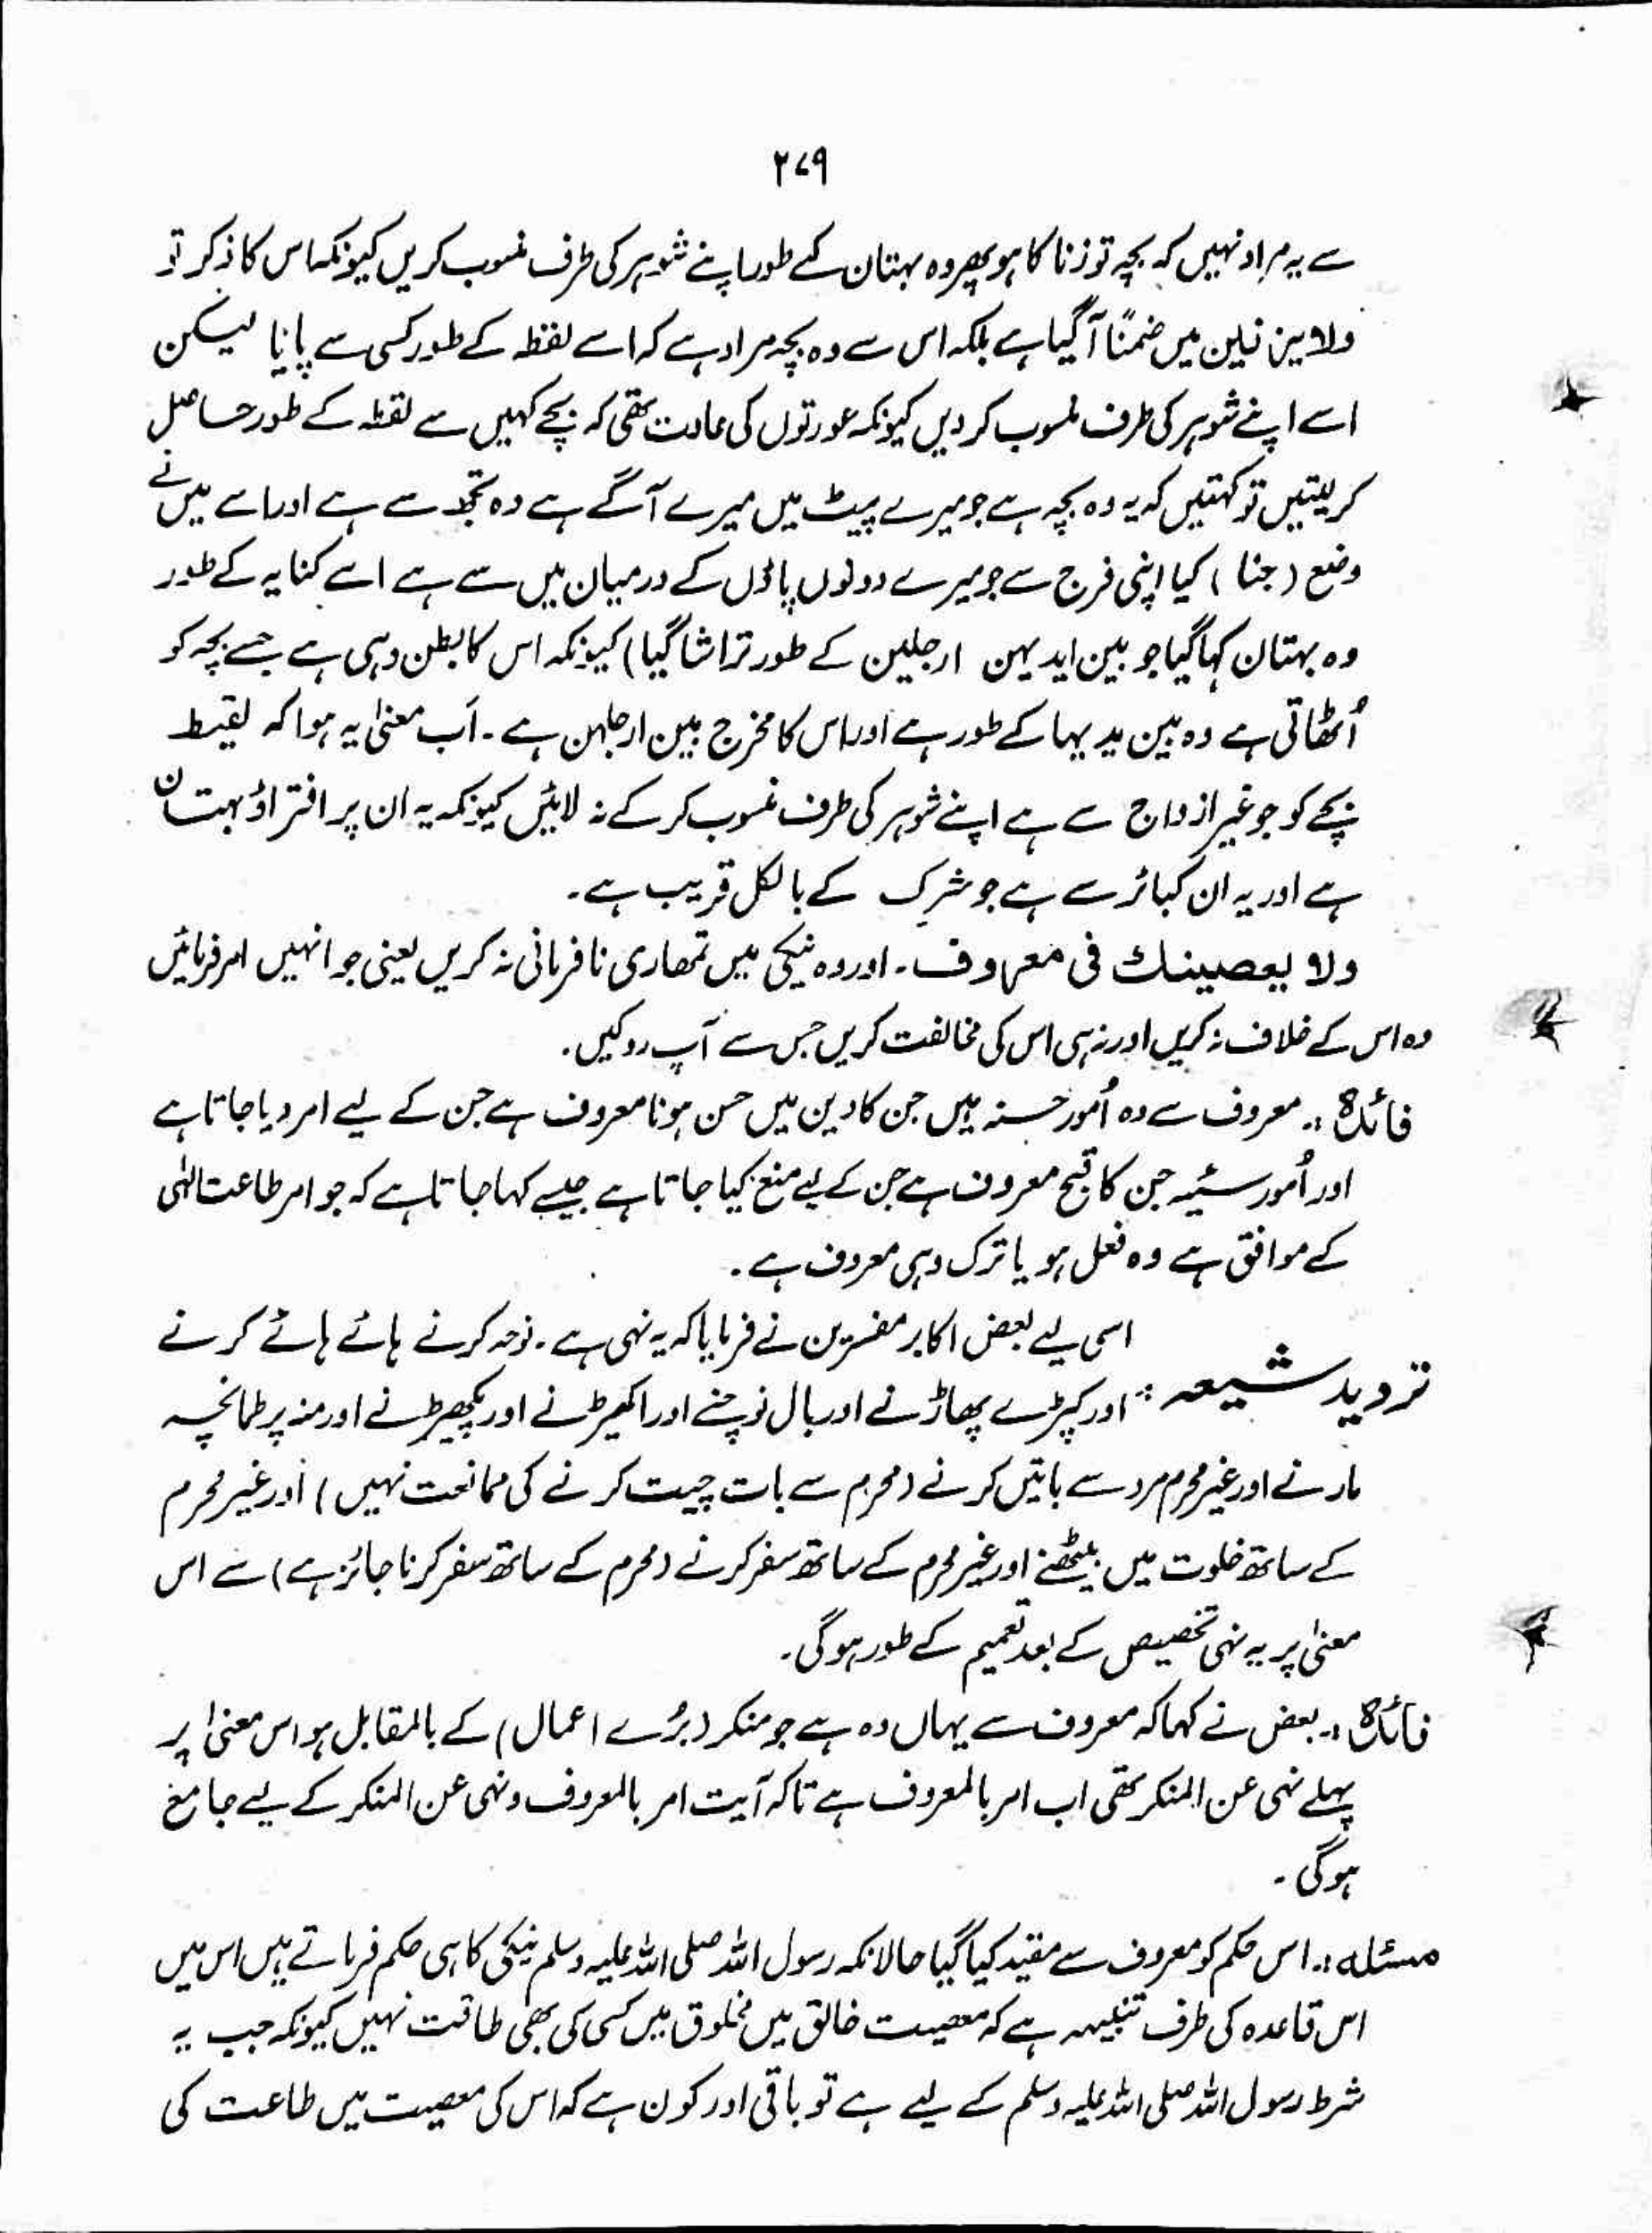 ۲۷۹
سے یہ مراد نہیں کہ بچہ تو زنا کا ہو پھر وہ بہتان کے طور اپنے شوہر کی طرف منسوب کریں کیونکہ اس کا ذکر تو
ولا یزنین میں ضمنًا آگیا ہے بلکہ اس سے وہ بچہ مراد ہے کہ اسے لقطہ کے طور کسی سے پایا لیکن
اسے اپنے شوہر کی طرف منسوب کر دیں کیونکہ عورتوں کی عادت تھی کہ بچے کہیں سے لقطہ کے طور حاصل
کر لیتیں تو کہتیں کہ یہ وہ بچہ ہے جو میرے پیٹ میں میرے آگے ہے وہ تجھ سے ہے اور اسے میں نے
وضع (جنا) کیا اپنی فرج سے جو میرے دونوں پاؤں کے درمیان میں سے ہے اسے کنایہ کے طور
وہ بہتان کہا گیا جو بین ایدیہن ارجلین کے طور تراشا گیا) کیونکہ اس کا بطن وہی ہے جسے بچہ کو
اُٹھاتی ہے وہ بین یدیہا کے طور ہے اور اس کا مخرج بین ارجلہن ہے۔ اَب معنیٰ یہ ہوا کہ لقیط
بچے کو جو غیر ازواج سے ہے اپنے شوہر کی طرف منسوب کر کے نہ لائیں کیونکہ یہ ان پر افتراؤ بہتان
ہے اور یہ ان کبائر سے ہے جو شرک کے بالکل قریب ہے۔
ولا یعصینك فی معروف۔ اور وہ نیکی میں تمھاری نافرمانی نہ کریں یعنی جو انہیں امر فرمائیں
وہ اس کے خلاف نہ کریں اور نہ ہی اس کی مخالفت کریں جس سے آپ روکیں۔
فائدہ :۔ معروف سے وہ اُمور حسنہ ہیں جن کا دین میں حسن ہونا معروف ہے جن کے لیے امر دیا جاتا ہے
اور اُمور سئیہ جن کا قبح معروف ہے جن کے لیے منع کیا جاتا ہے جیسے کہا جاتا ہے کہ جو امر طاعت الٰہی
کے موافق ہے وہ فعل ہو یا ترک وہی معروف ہے۔
اسی لیے بعض اکابر مفسرین نے فرمایا کہ یہ نہی ہے۔ نوحہ کرنے ہائے ہائے کرنے
تردید شیعہ : اور کپڑے پھاڑنے اور بال نوچنے اور اکھیڑنے اور بکھیڑنے اور منہ پر طمانچہ
مارنے اور غیر محرم مرد سے باتیں کرنے (محرم سے بات چیت کرنے کی ممانعت نہیں) اور غیر محرم
کے ساتھ خلوت میں بیٹھنے اور غیر محرم کے ساتھ سفر کرنے (محرم کے ساتھ سفر کرنا جائز ہے) سے اس
معنیٰ پر یہ نہی تخصیص کے بعد تعمیم کے طور ہوگی۔
فائدہ :۔ بعض نے کہا کہ معروف سے یہاں وہ ہے جو منکر (بُرے اعمال) کے بالمقابل ہو اس معنیٰ پر
پہلے نہی عن المنکر تھی اب امر بالمعروف ہے تاکہ آیت امر بالمعروف ونہی عن المنکر کے لیے جامع
ہوگی۔
مسئلہ :۔ اس حکم کو معروف سے مقید کیا گیا حالانکہ رسول اللہ صلی اللہ علیہ وسلم نیکی کا ہی حکم فرماتے ہیں اس میں
اس قاعدہ کی طرف تنبیہہ ہے کہ معصیت خالق میں مخلوق میں کسی کی بھی طاقت نہیں کیونکہ جب یہ
شرط رسول اللہ صلی اللہ علیہ وسلم کے لیے ہے تو باقی اور کون ہے کہ اس کی معصیت میں طاعت کی